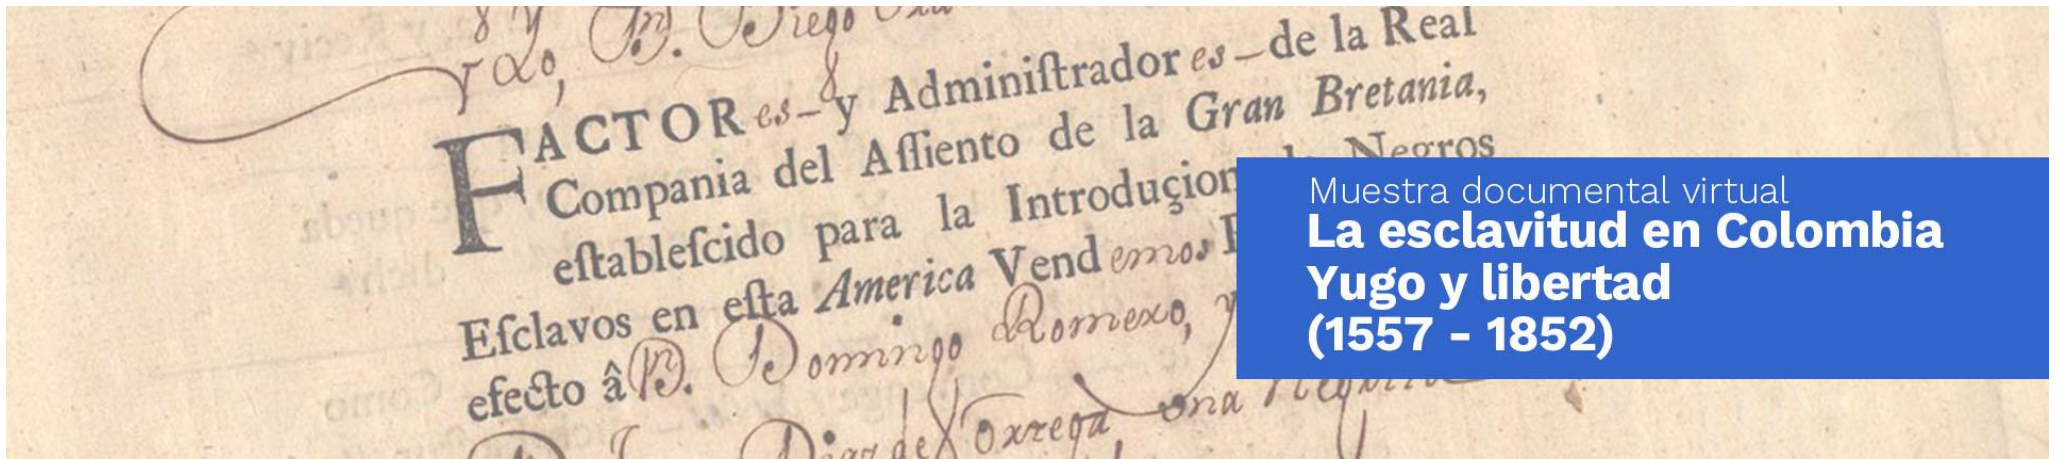 y Do, Dn. Diego
FACTORes- y Adminiſtradores- de la Real
Compania del Aſſiento de la Gran Bretania,
eſtableſcido para la Introduçion de Negros
Eſclavos en eſta America Vendemos
efecto â Dn. Domingo Romero, y
una
Muestra documental virtual
La esclavitud en Colombia
Yugo y libertad
(1557 - 1852)